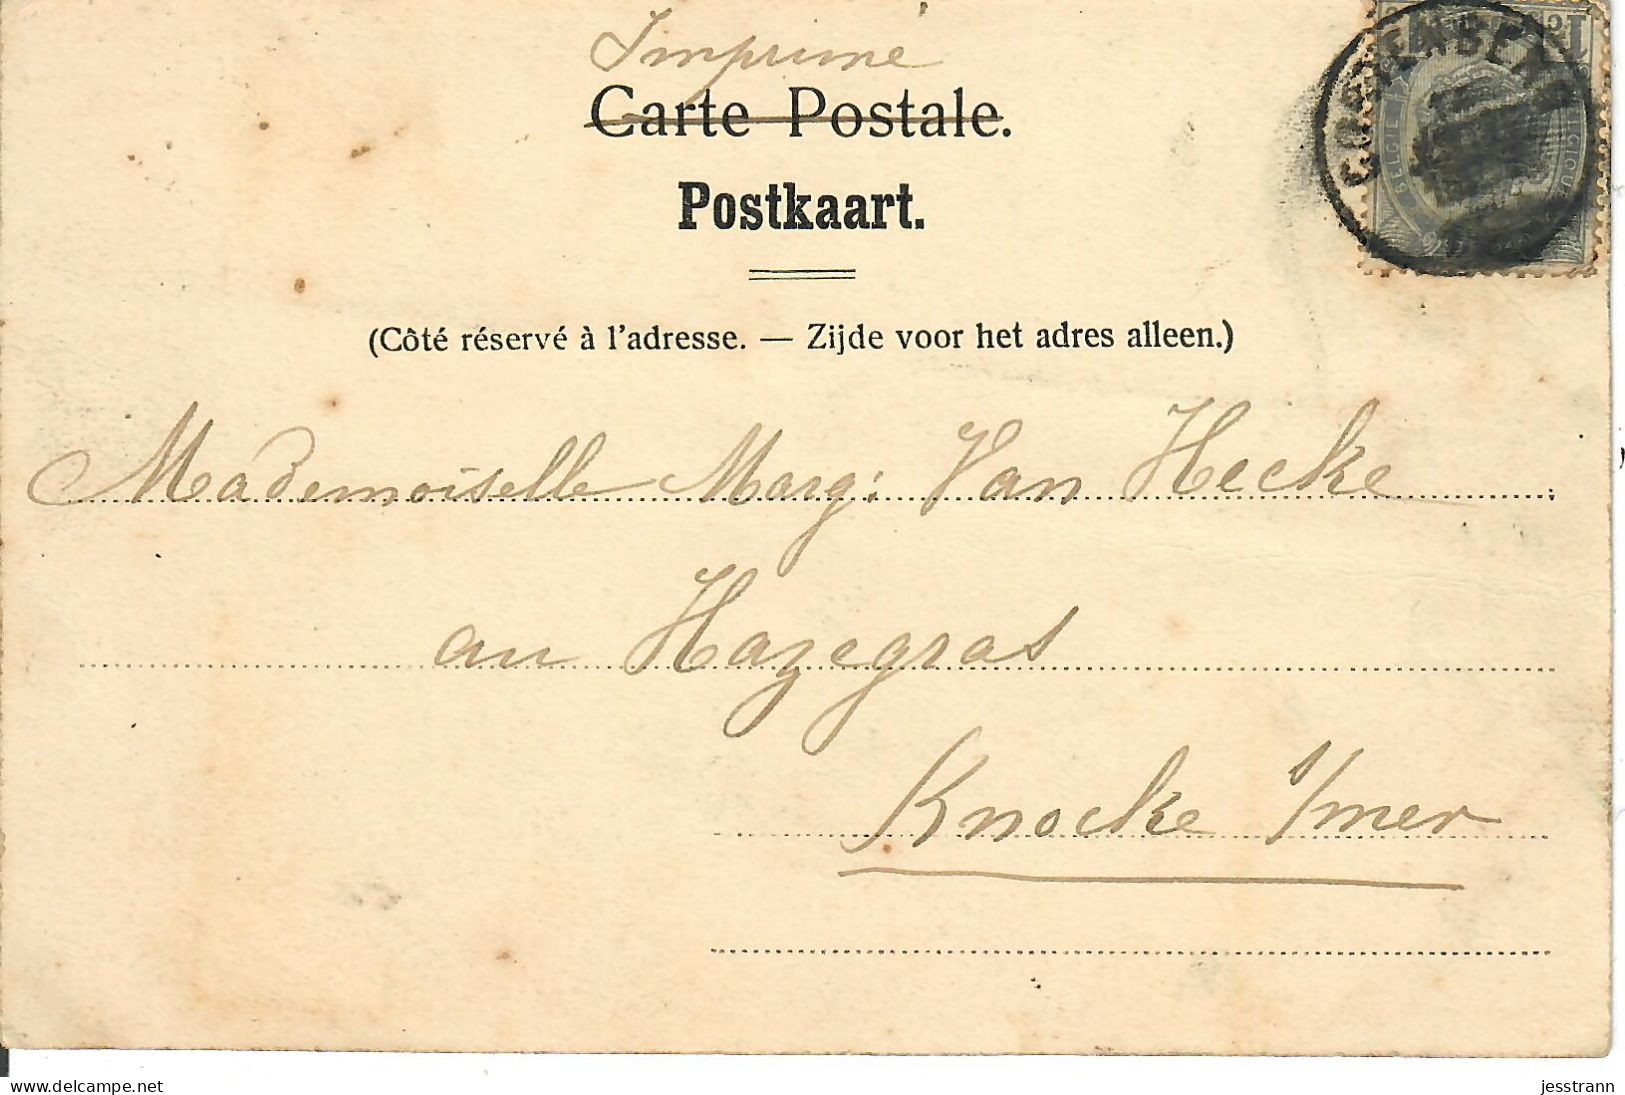 Imprimé
Carte Postale.
Postkaart.
(Côté réservé à l'adresse. — Zijde voor het adres alleen.)
CORTENBERG
BELGIE
Mademoiselle Marg: Van Hecke
au Hazegras
Knocke s/mer
delcampe.net
jesstrann